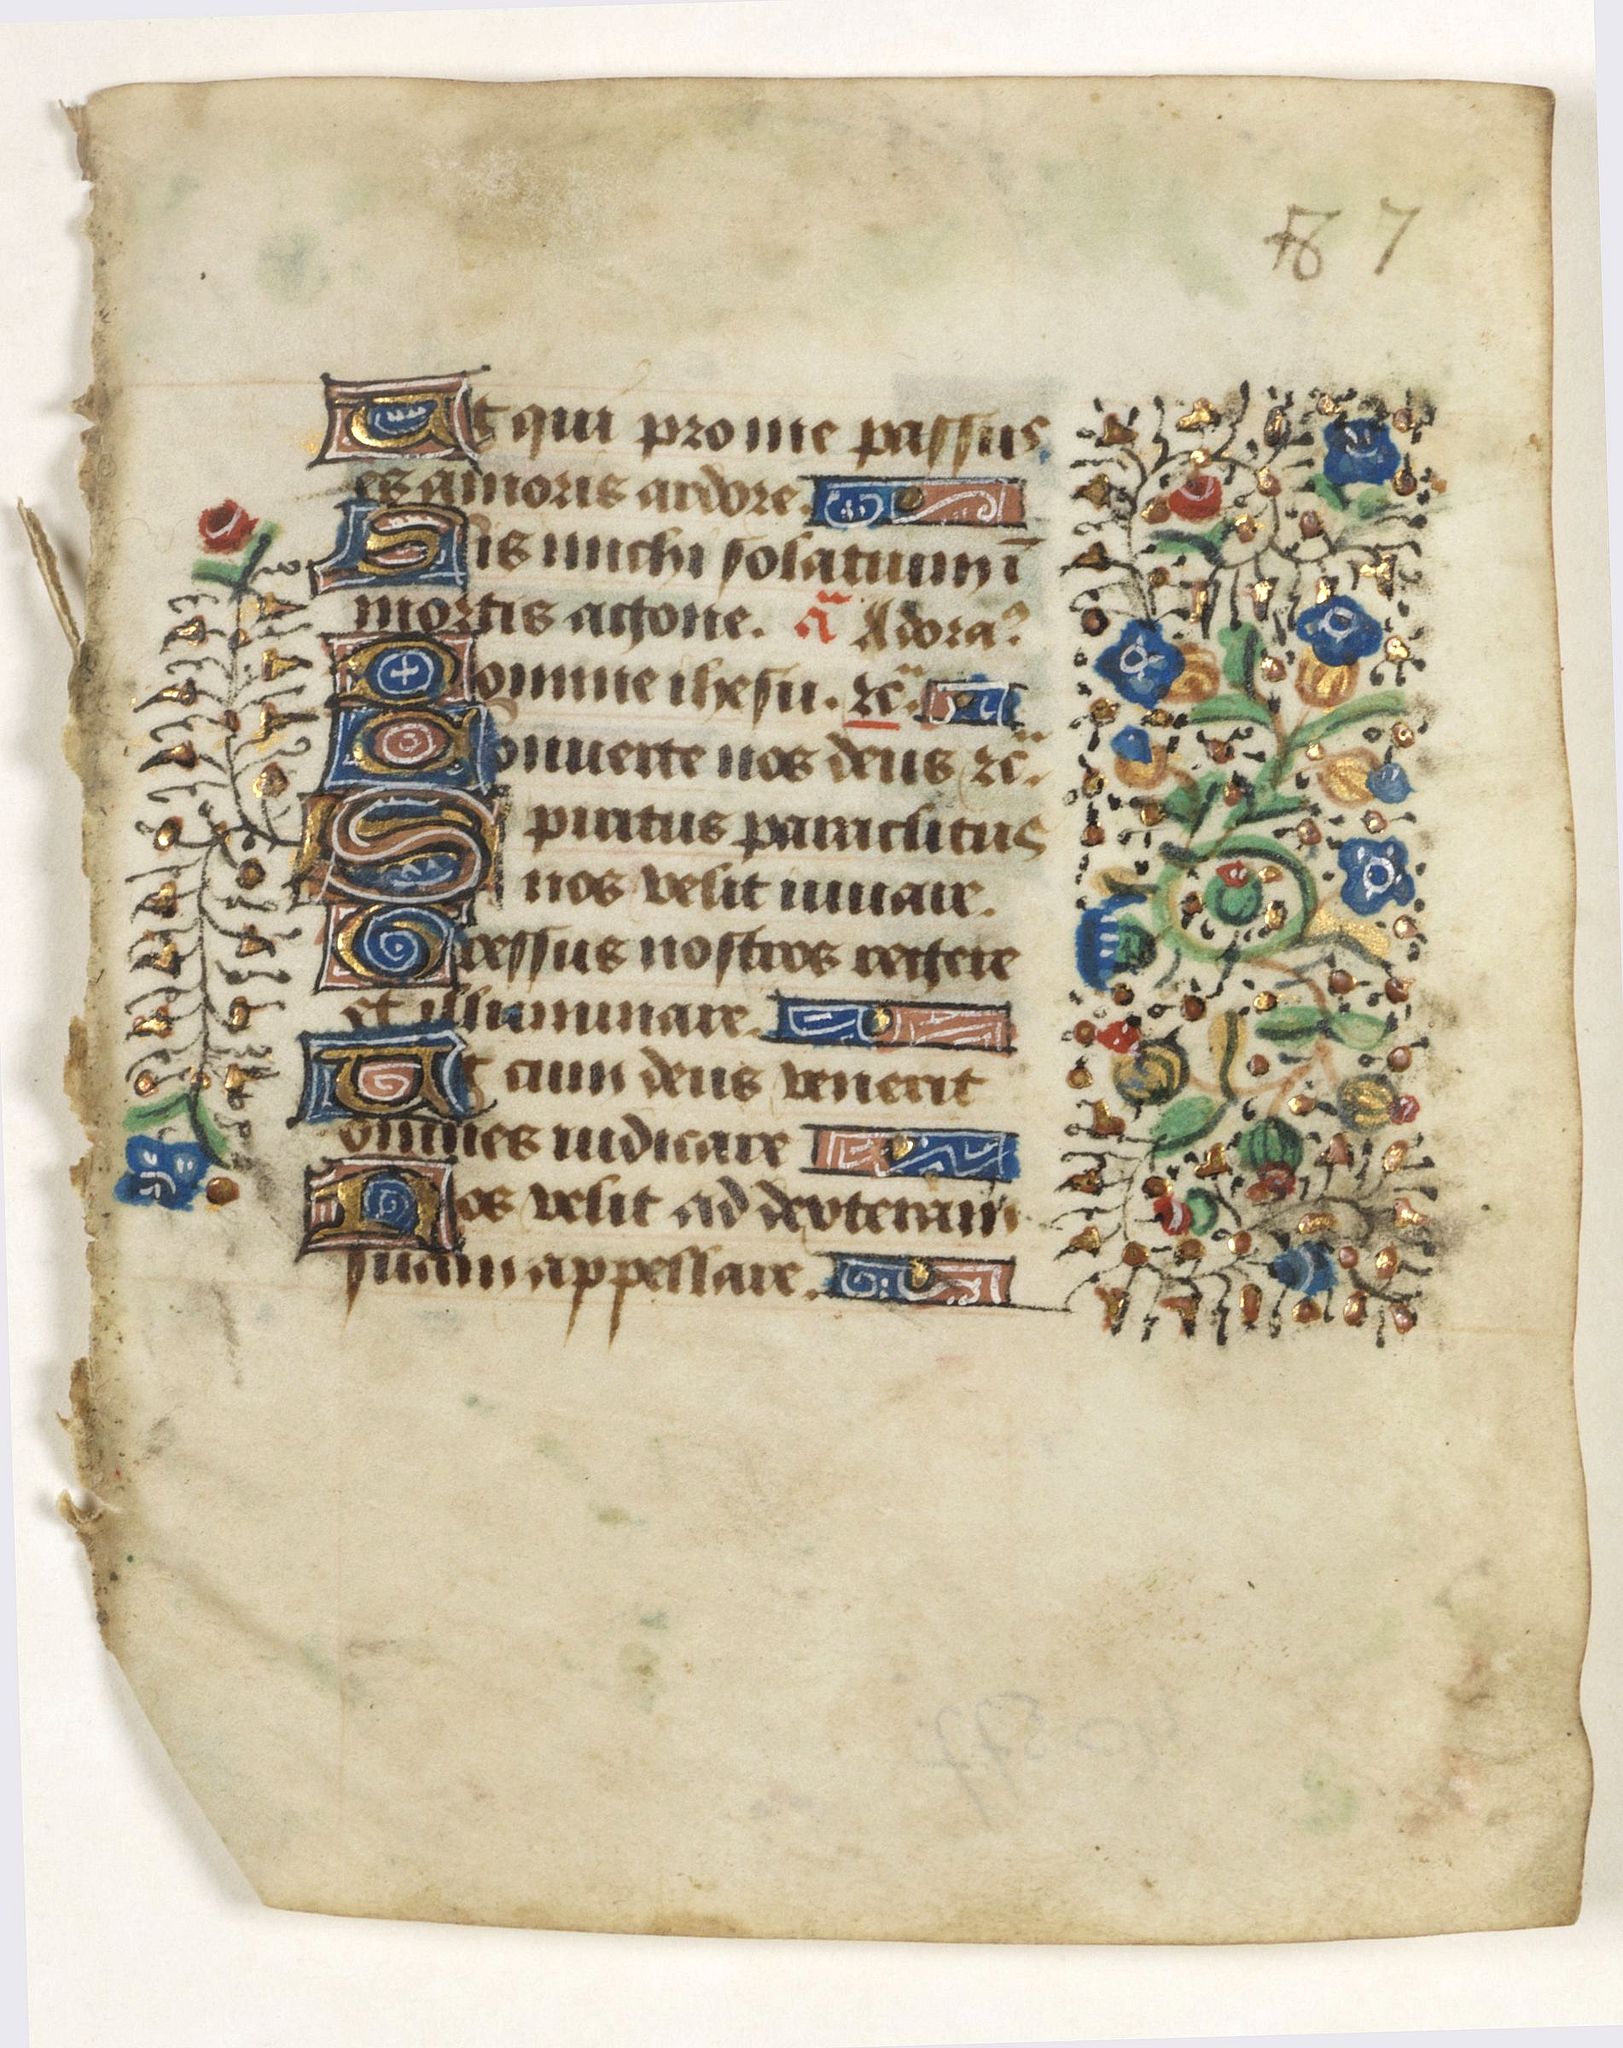 87
Ut qui pro me passus
es amoris ardore.
Sis michi solatium ī
mortis agone. a Adora
Domine ihesu. ꝛc.
Conuerte nos deus ꝛc.
Spiritus paraclitus
nos velit iuuare.
Gressus nostros regere
et illuminare.
Ut cum deus venerit
omnes iudicare
Nos velit ad dexteram
suam appellare.